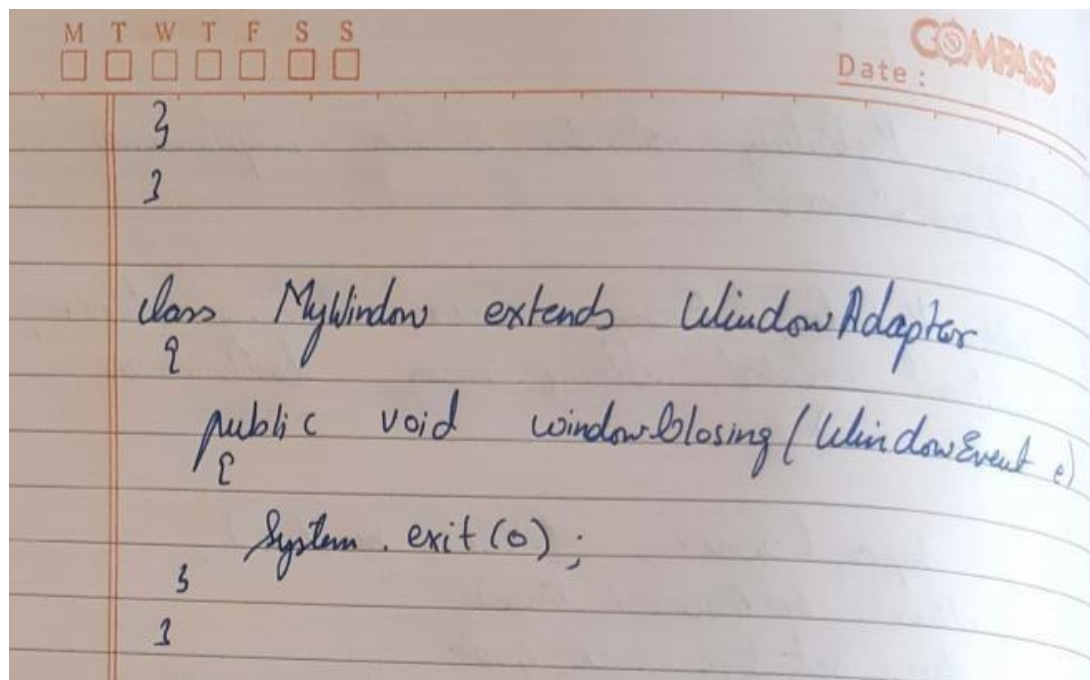 M T W T F S S
COMPASS
Date :
}
}
class MyWindow extends WindowAdapter
{
public void windowClosing(WindowEvent e)
{
System.exit(0);
}
}